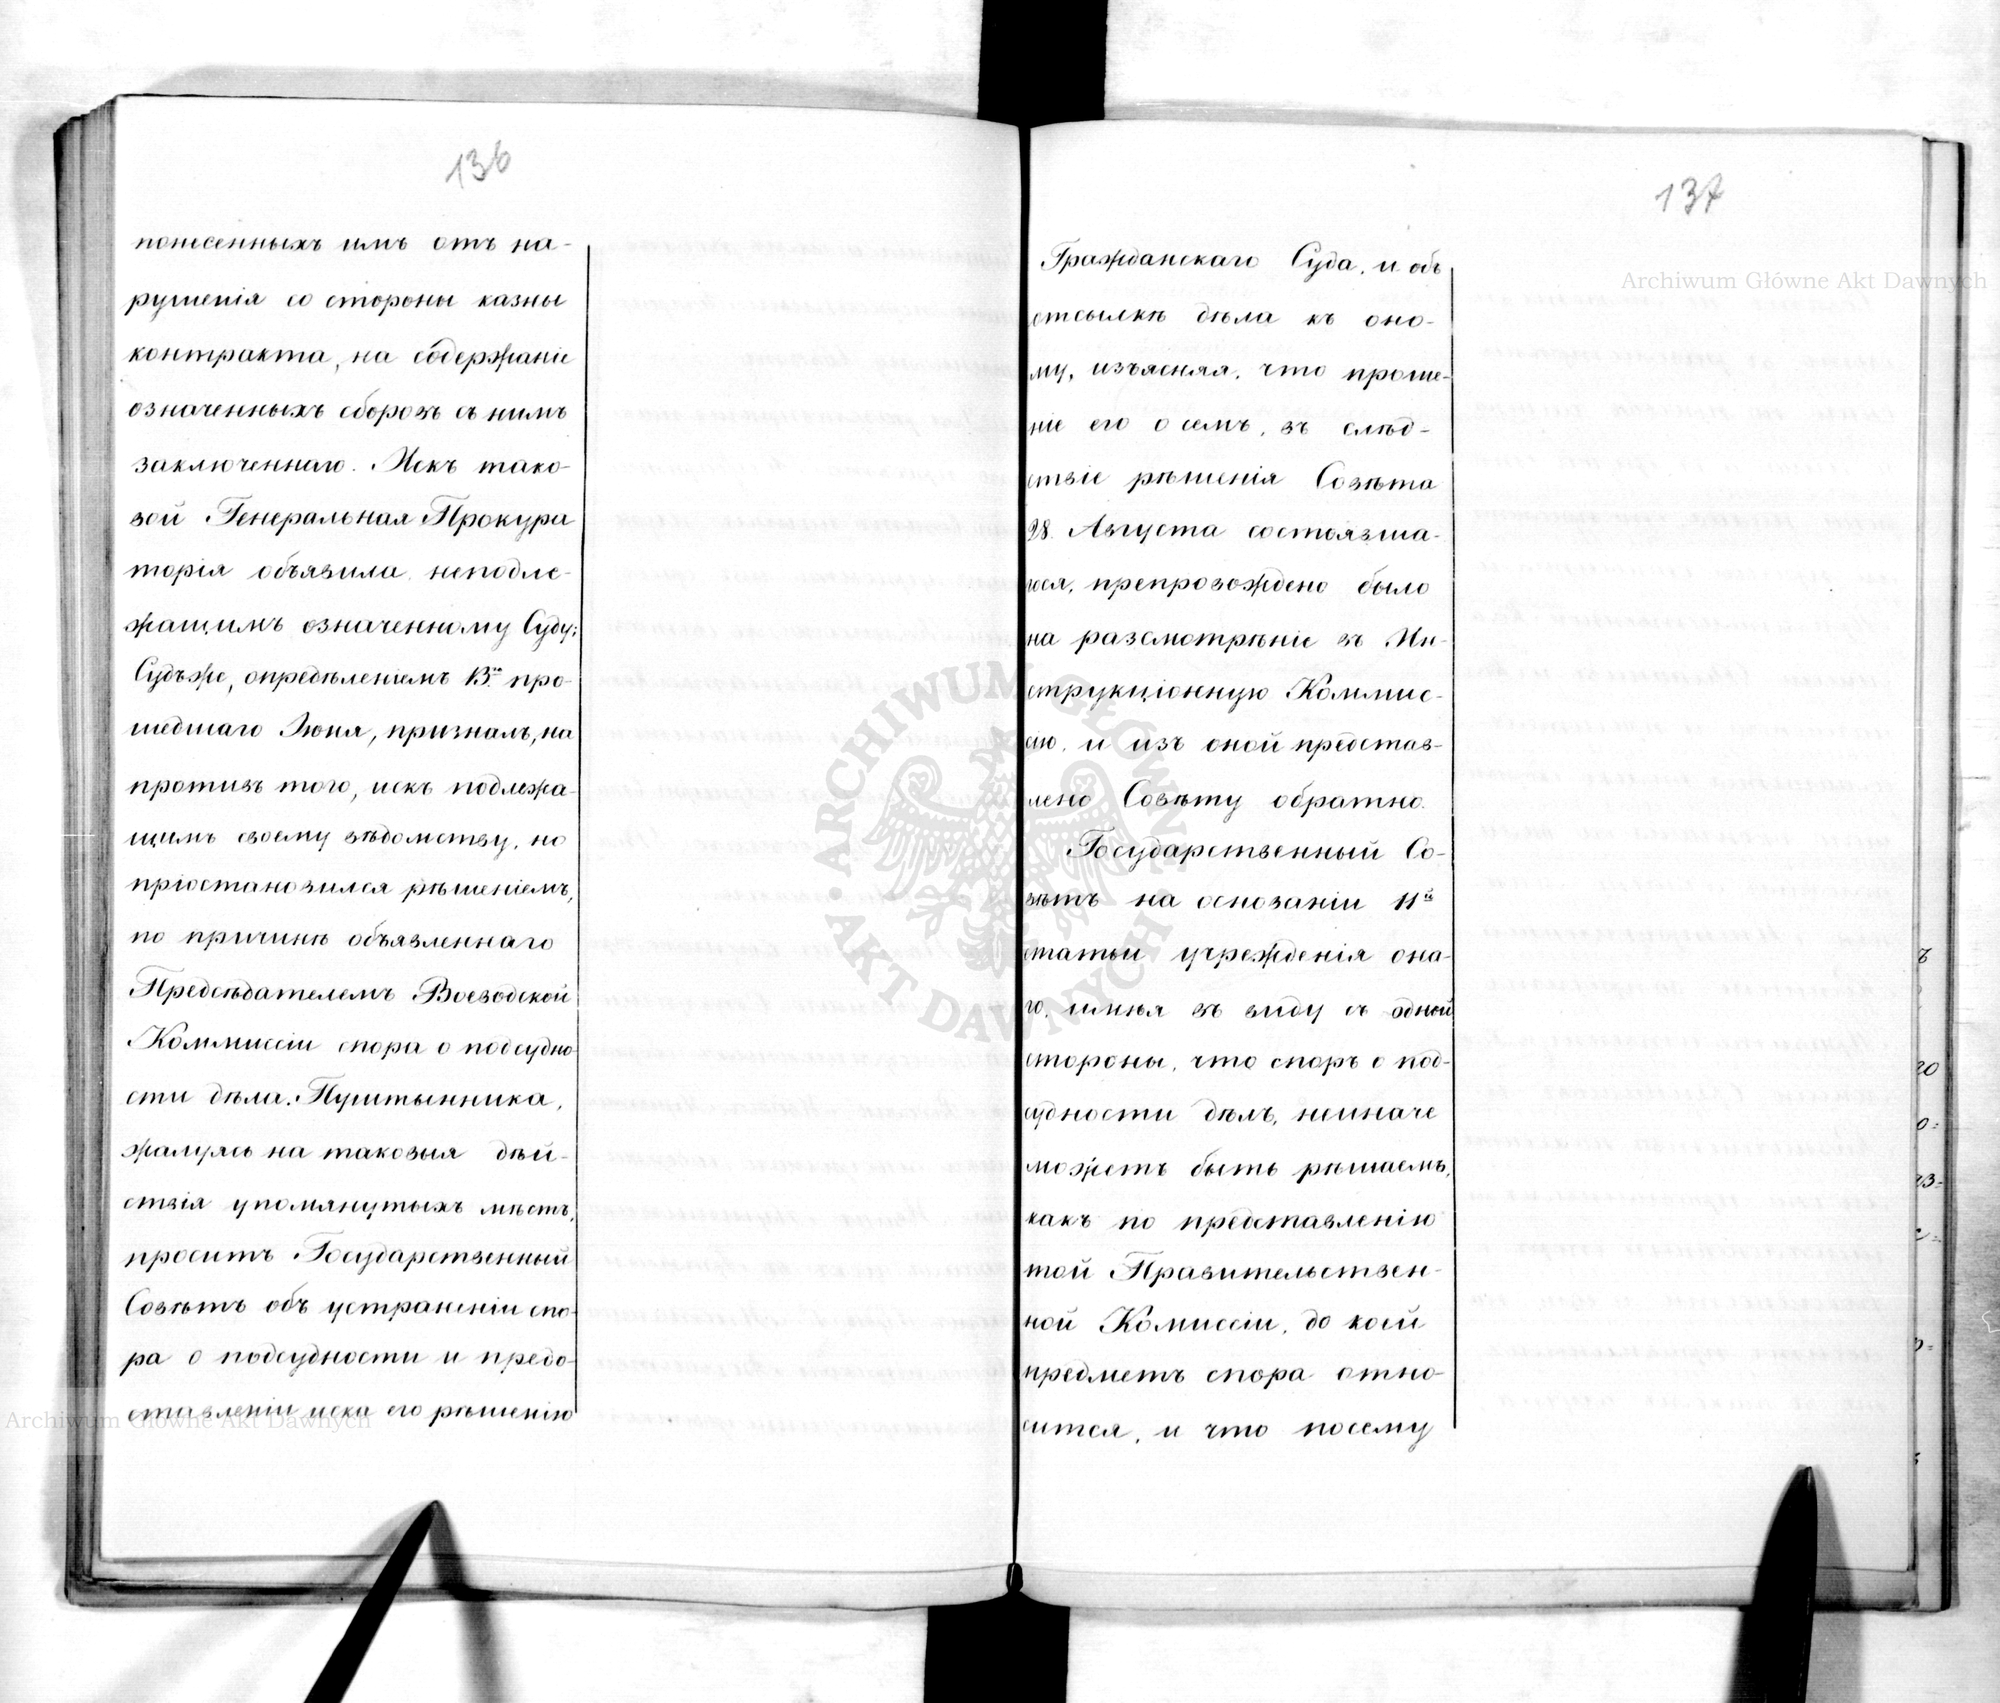 136
понесенныхъ имъ отъ на-
рушенія со стороны казны
контракта, на содержаніе
означенныхъ сборовъ съ нимъ
заключеннаго. Искъ тако-
вой Генеральная Прокура
торія объявила неподле-
жащимъ означенному Суду;
Судъ же, опредѣленіемъ 13.го про-
шедшаго Іюня, призналъ, на
противъ того, искъ подлежа-
щимъ своему вѣдомству, но
пріостановился рѣшеніемъ,
по причинѣ объявленнаго
Предсѣдателемъ Воеводской
Коммиссіи спора о подсудно-
сти дѣла. Пуштынника,
жалуясь на таковыя дѣй-
ствія упомянутыхъ мѣстъ,
проситъ Государственный
Совѣтъ объ устраненіи спо-
ра о подсудности и предо-
ставленіи иска его рѣшенію
137
Гражданскаго Суда, и объ
отсылкѣ дѣла къ оно-
му, изъясняя, что проше-
ніе его о семъ, въ слѣд-
ствіе рѣшенія Совѣта
28. Августа состоявша-
гося, препровождено было
на разсмотрѣніе въ Ин-
струкціонную Коммис-
сію, и изъ оной представ-
лено Совѣту обратно.
Государственный Со-
вѣтъ на основаніи 11й
статьи учрежденія она-
го, имѣя въ виду съ одной
стороны, что споръ о под-
судности дѣлъ, неиначе
можетъ быть рѣшаемъ,
какъ по представленію
той Правительствен-
ной Комиссіи, до коей
предметъ спора отно-
сится, и что посему
Archiwum Główne Akt Dawnych
Archiwum Główne Akt Dawnych
ARCHIWUM GŁÓWNE AKT DAWNYCH